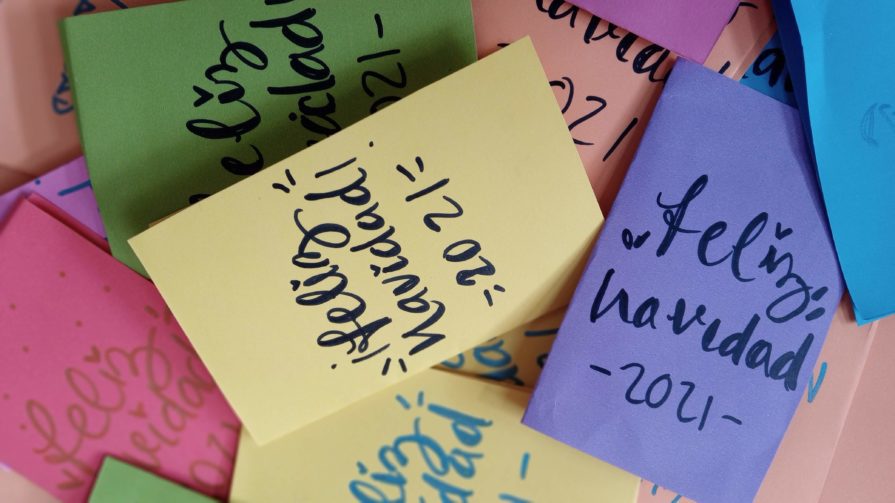 Feliz
navidad
2021-
navidad
2021
¡Feliz
navidad!
=2021=
Feliz
navidad
-2021-
Feliz
navidad
2021
Feliz